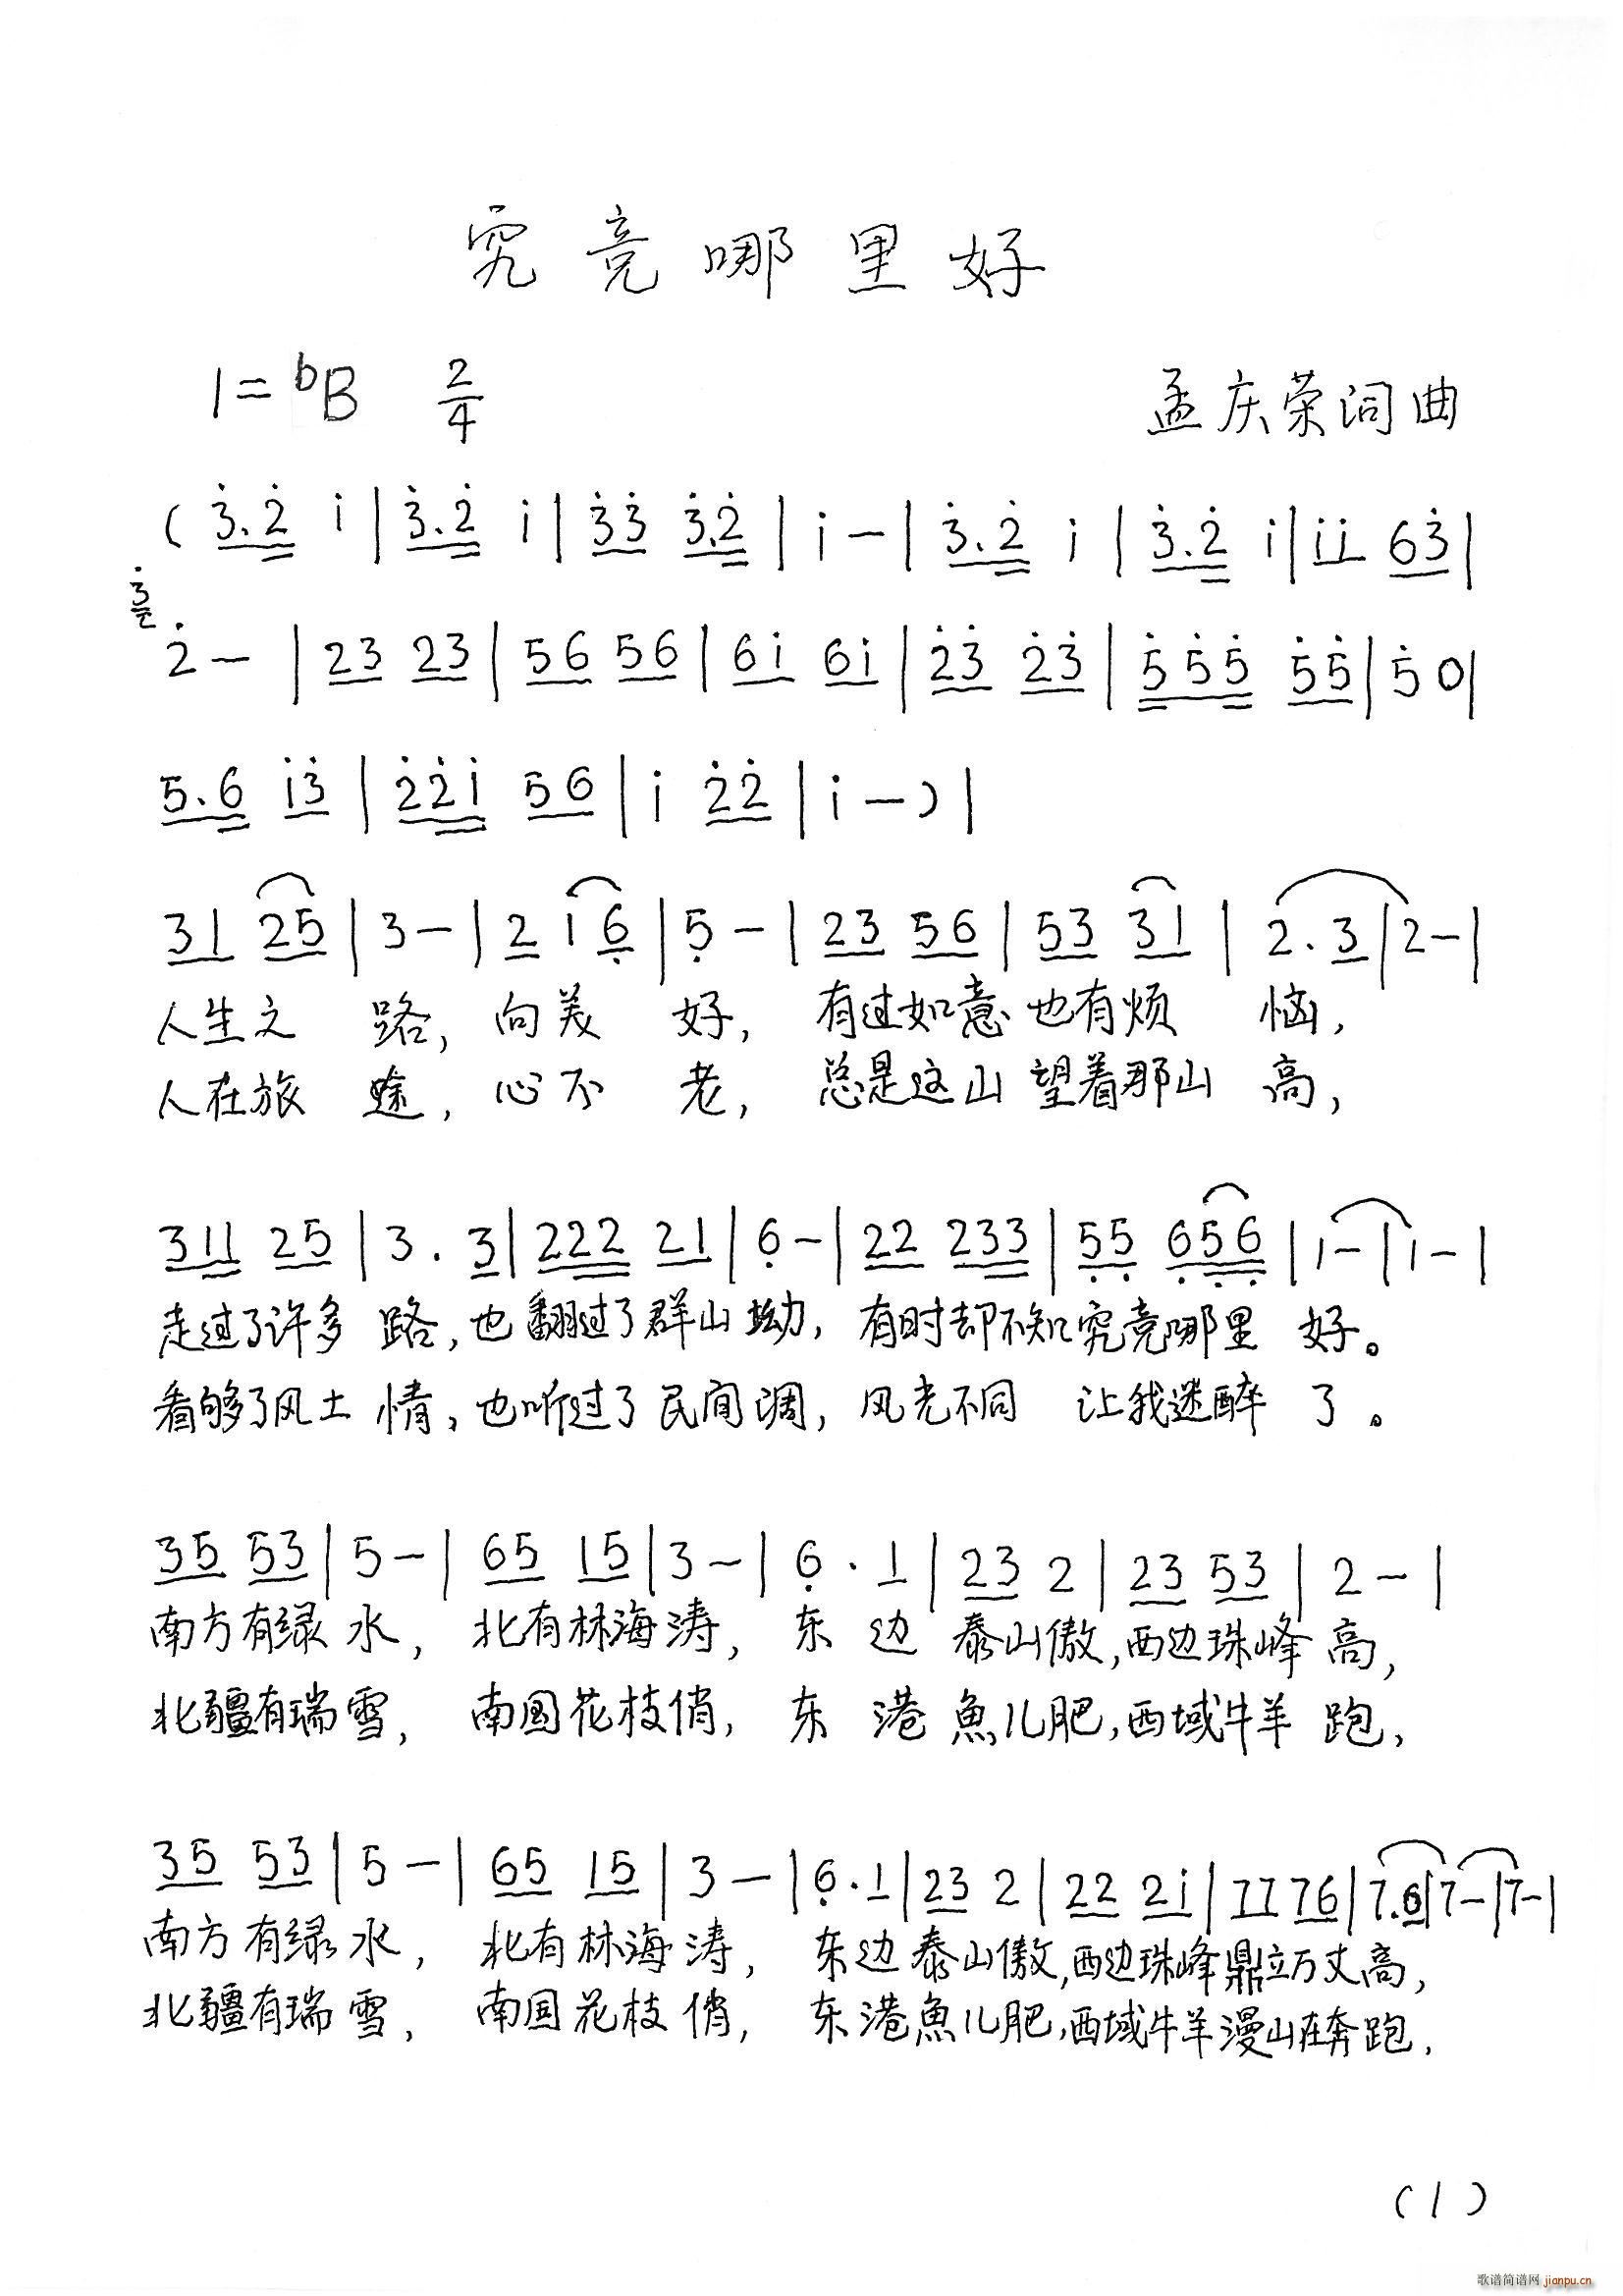 究竟哪里好
1=ᵇB 2/4 孟庆荣词曲
( 3̇.2̇ i | 3̇.2̇ i | 3̇3̇ 3̇.2̇ | i - | 3̇.2̇ i | 3̇.2̇ i | ii 63̇ |
2̇ - | 23 23 | 56 56 | 6i 6i | 2̇3̇ 2̇3̇ | 5̇5̇5̇ 5̇5̇ | 5̇ 0 |
5.6 i3̇ | 2̇2̇i 56 | i 2̇2̇ | i - ) |
31 25 | 3 - | 2 1 6̣ | 5̣ - | 23 56 | 53 31 | 2.3 | 2 - |
人生之 路, 向美 好, 有过如意也有烦 恼,
人在旅 途, 心不 老, 总是这山望着那山 高,
311 25 | 3 . 3 | 222 21 | 6̣ - | 22 233 | 5̣5̣ 6̣5̣6̣ | 1 - | 1 - |
走过了许多 路, 也翻过了群山坳, 有时却不知究竟哪里 好。
看够了风土 情, 也听过了民间调, 风光不同 让我迷醉 了。
35 53 | 5 - | 65 15 | 3 - | 6̣ . 1 | 23 2 | 23 53 | 2 - |
南方有绿水, 北有林海涛, 东 边 泰山傲, 西边珠峰高,
北疆有瑞雪, 南国花枝俏, 东 港 魚儿肥, 西域牛羊 跑,
35 53 | 5 - | 65 15 | 3 - | 6̣ . 1 | 23 2 | 22 2i | 77 76 | 7.6 | 7 - | 7 - |
南方有绿水, 北有林海涛, 东边泰山傲, 西边珠峰鼎立万丈高,
北疆有瑞雪, 南国花枝俏, 东港魚儿肥, 西域牛羊漫山在奔跑,
(1)
歌谱简谱网 jianpu.cn